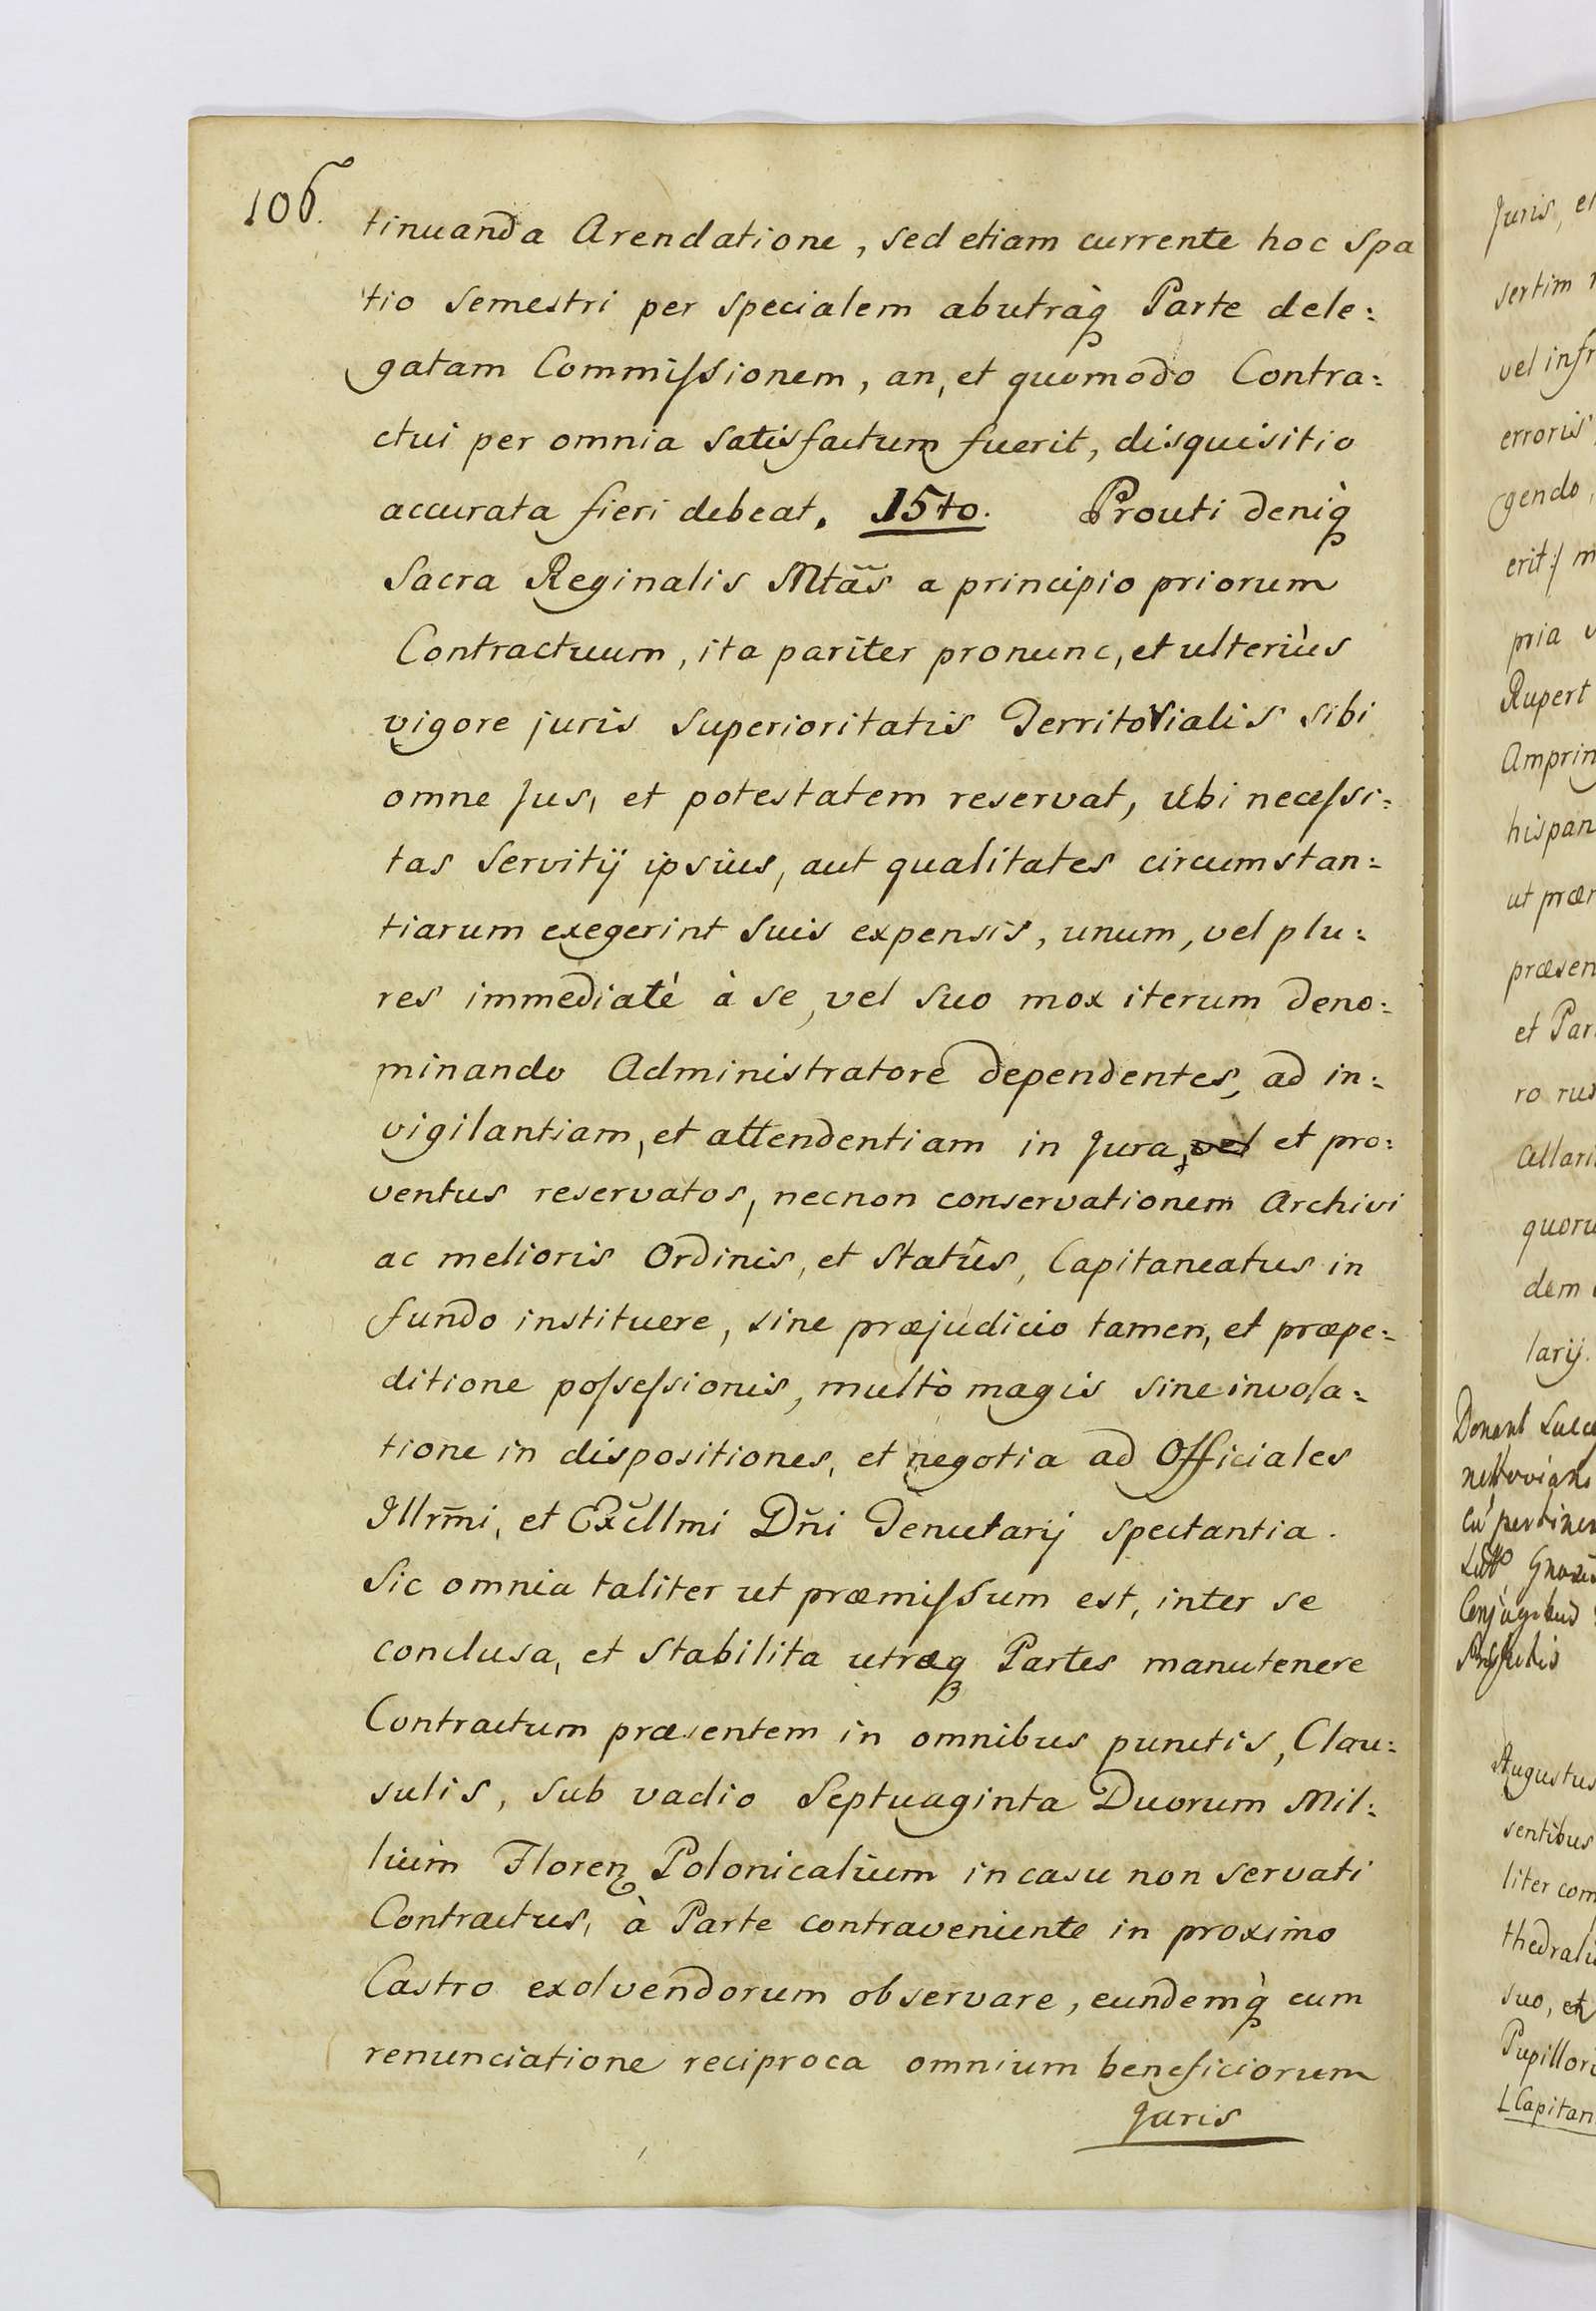 106.
tinuanda Arendatione, sed etiam currente hoc spa
tio semestri per specialem abutràq Parte dele:
gatam Commiſsionem, an, et quomodo Contra:
ctui per omnia satisfactum fuerit, disquisitio
accurata fieri debeat. 15to. Prouti deniq̀
Sacra Reginalis Mtãs a principio priorum
Contractuum, ita pariter pronunc, et ulteriùs
vigore juris superioritatis Territorialis sibi
omne Jus, et potestatem reservat, Ubi neceſsi:
tas Servitij ipsius, aut qualitates circumstan:
tiarum exegerint suis expensis, unum, vel plu:
res immediatè à se, vel suo mox iterum deno:
minando Administratore dependentes, ad in:
vigilantiam, et attendentiam in Jura, vel et pro:
ventus reservatos, necnon conservationem Archivi
ac melioris Ordinis, et Statûs, Capitaneatus in
fundo instituere, sine præjudicio tamen, et præpe:
ditione poſseſsionis, multò magis sine invola:
tione in dispositiones, et negotia ad Officiales
Illrm̃i, et Excllmi Dñi Tenutarij spectantia.
Sic omnia taliter ut præmiſsum est, inter se
conclusa, et stabilita utræq Partes manutenere
Contractum præsentem in omnibus punctis, Clau:
sulis, sub vadio Septuaginta Duorum Mil:
lium Floren Polonicalium in casu non servati
Contractus, à Parte contraveniente in proximo
Castro exolvendorum observare, eundemq̀ cum
renunciatione reciproca omnium beneficiorum
Juris
Juris, et
sertim
vel infr
erroris
gendo,
erit:/ m
pria v
Rupert
Amprin
hispan
ut præ
præsen
et Par
ro rus
quoru
dem
larij.
Augustus
sentibus
liter com
thedrali
suo, et
Pupillor
Capitan